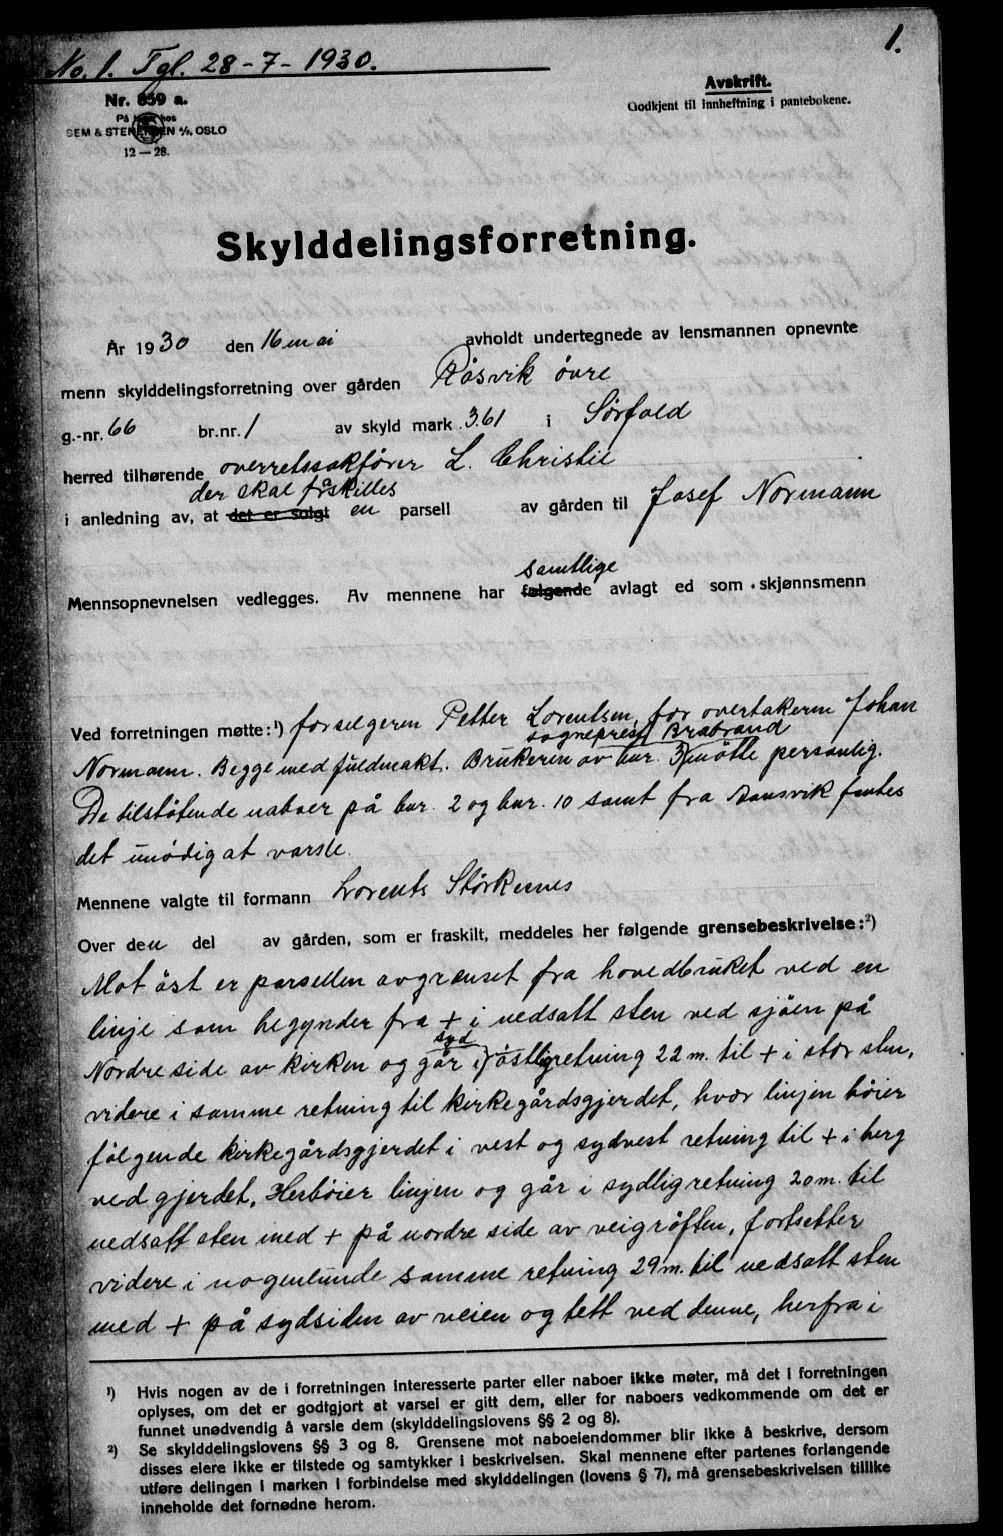 1.
No. 1. Tgl. 28-7-1930.
Avskrift.
Godkjent til innheftning i pantebøkene.
Nr. 859 a.
På hos
SEM & STENERSEN A/S, OSLO
12—28.
Skylddelingsforretning.
År 1930 den 16 mai avholdt undertegnede av lensmannen opnevnte
menn skylddelingsforretning over gården Røsvik øvre
g.-nr. 66 br.nr. 1 av skyld mark 3.61 i Sørfold
herred tilhørende overretssakfører L. Christie
der skal fraskilles
i anledning av, at det er solgt en parsell av gården til Josef Normann
samtlige
Mennsopnevnelsen vedlegges. Av mennene har følgende avlagt ed som skjønnsmenn
Ved forretningen møtte: ¹) for selgeren Petter Lorentsen, for overtakeren Johan
sogneprest Brabrand
Normann. Begge med fuldmakt. Brukeren av bnr. 3 møtte personlig.
De tilstøtende naboer på bnr. 2 og bnr. 10 samt fra fantes
det unødig at varsle.
Mennene valgte til formann Lorents Storkernes
Over den del av gården, som er fraskilt, meddeles her følgende grensebeskrivelse: ²)
Mot øst er parsellen avgrænset fra hovedbruket ved en
linje som begynder fra + i nedsatt sten ved sjøen på
syd
Nordre side av kirken og går i østlig retning 22 m. til + i stor sten,
videre i samme retning til kirkegårdsgjerdet, hvor linjen bøier
følgende kirkegårdsgjerdet i vest og sydvest retning til + i berg
ved gjerdet. Her bøier linjen og går i sydlig retning 20 m. til
nedsatt sten med + på nordre side av veigrøften, fortsetter
videre i nogenlunde samme retning 29 m. til nedsatt sten
med + på sydsiden av veien og tett ved denne, herfra i
¹) Hvis nogen av de i forretningen interesserte parter eller naboer ikke møter, må det i forretningen
oplyses, om det er godtgjort at varsel er gitt dem, eller for naboers vedkommende om det er
funnet unødvendig å varsle dem (skylddelingslovens §§ 2 og 8).
²) Se skylddelingslovens §§ 3 og 8. Grensene mot naboeiendommer blir ikke å beskrive, dersom
disses eiere ikke er tilstede og samtykker i beskrivelsen. Skal mennene efter partenes forlangende
utføre delingen i marken i forbindelse med skylddelingen (lovens § 7), må grensebeskrivelsen tillike
inneholde det fornødne herom.